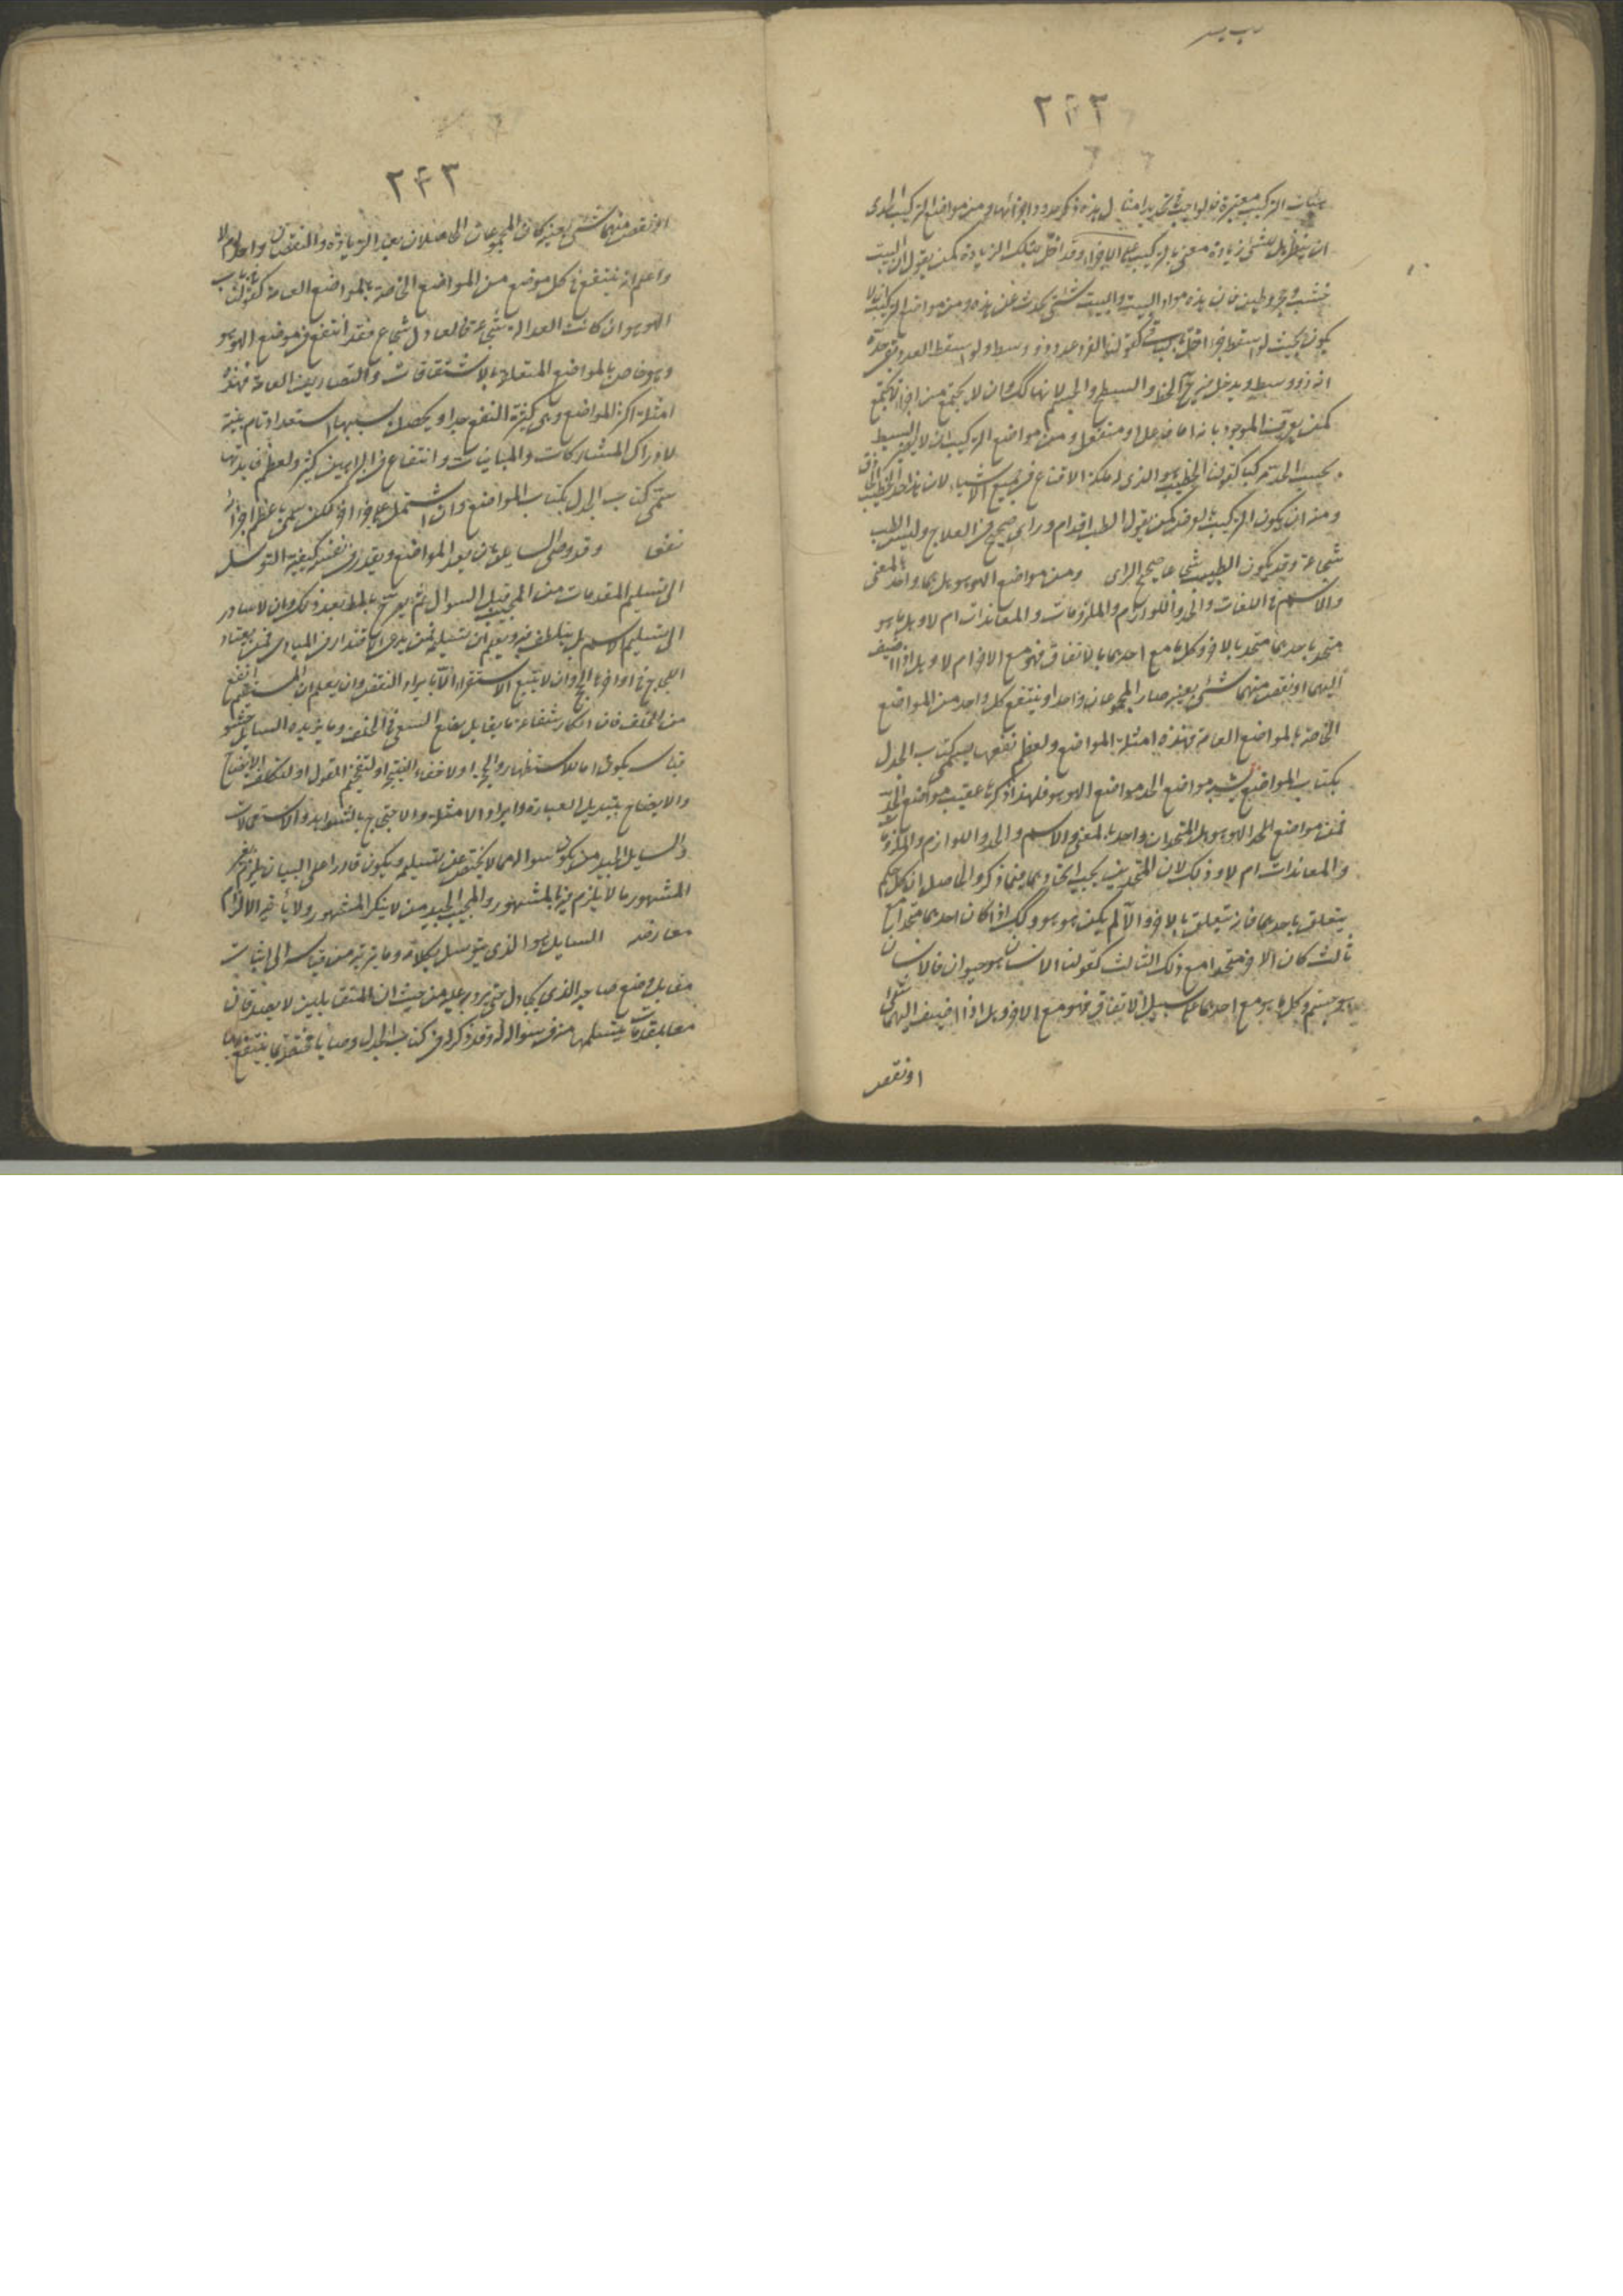 ۲۴۲
هيئات التركيب معتبرة فالواجب في تحديد امثال هذه ذكر حدود اجزائها ومن مواضع التركيب الذى
ان ينظر هل للشئ زيادة معنى بالتركيب على الاجزاء وقد اخل بتلك الزيادة كمن يقول ان البيت
خشب وحجر وطين فان هذه مواد البيت والبيت شئ يحدث عن هذه ومن مواضع التركيب ان لا
يكون بحيث لو اسقط جزء اختل باقيه كقولنا الفرد عدد ذو وسط ولو اسقط العدد بقى حده
انه ذو وسط ويدخل فيه ح الخط والسطح والجسم لانها كك وان لا يجمع من اجزاء لا تجتمع
كمن يعرف الموجود بانه اما فاعل او منفعل ومن مواضع التركيب ان لا يصير البسيط
بحسب الحد مركبا كقولنا الخطيب هو الذى له ملكة الاقناع في جميع الاشياء لان هذا حد الخطيب الحاذق
ومنه ان يكون التركيب بالعرض كمن يقول الطب اقدام وراى صحيح في العلاج وليس الطب
شجاعة وقد يكون الطبيب شجاعا صحيح الراى ومن مواضع الهو هو هل هما واحد بالمعنى
والاسم في اللغات والحد واللوازم والملزومات والمعاندات ام لا وهل ما هو
متحد باحدهما متحد بالاخر وكل ما مع احدهما بالاتفاق فهو مع الاخر ام لا وهل اذا اضيف
اليهما او نقص منهما شئ بعينه صار المجموعان واحدا وينتفع كل واحد من المواضع
الخاصة بالمواضع العامة فهذه امثلة المواضع ولعظم نفعها يسمى كتاب الجدل
بكتاب المواضع يشبه مواضع الحد مواضع الهو هو فلهذا ذكرها عقيب مواضع الحد
فمن مواضع الحد الهو هو هل المتحدان واحد بالمعنى والاسم والحد واللوازم والملزومات
والمعاندات ام لا وذلك لان المتحدين يجب اتحادهما فيما ذكر والحاصل ان كل حكم
يتعلق باحدهما فانه يتعلق بالاخر والا لم يكن هو هو وكك اذا كان احدهما متحدا مع
ثالث كان الاخر متحدا مع ذلك الثالث كقولنا الانسان هو حيوان فالانسان
هو جسم وكل ما هو مع احدهما على سبيل الاتفاق فهو مع الاخر وهل اذا اضيف اليهما شئ
او نقص
۲۴۳
او نقص منهما شئ بعينه كان المجموعان الحاصلان بعد الزيادة والنقصان واحدا ام لا
واعلم انه ينتفع في كل موضع من المواضع الخاصة بالمواضع العامة كقولنا في باب
الهو هو ان كانت العدالة شجاعة فالعادل شجاع فقد انتفع في موضع الهو هو
وهو خاص بالمواضع المتعلقة بالاشتقاقات والتصاريف العامة فهذه
امثلة اكثر المواضع وهى كثيرة النفع جدا ويحصل بسببها استعداد تام بقية
لادراك المشاركات والمباينات وانتفاع في البراهين كثير ولعظم فائدتها
سمى كتاب الجدل بكتاب المواضع وان اشتمل على اجزاء اخر لكن سمى باعظم اجزائه
نفعا وقد وصى السائل بان يعد المواضع ويقدر في نفسه كيفية التوسل
الى تسليم المقدمات من المجيب قبل السوال ثم يصرح بالمط بعد ذلك وان لا يبادر
الى تسليم الاسم بل يتلطف فيه ويعلم ان تسليمه ممن يدعى الاقتدار في المبادى فمن يعتاد
اللجاج في اواخرها انجح وان لا يتبع الاستقراء الا بايراد النقض وان يعلم ان المستقيم انفع
من الخلف فان انكار شناعة ما يقابل يمنع السعى في الخلف وما يزيده السايل حشوا في
قياسه يكون اما للاستظهار والحجة او لاخفاء النتيجة او لتفخيم القول او لتكلف الايضاح
والايضاح بتبديل العبارة وايراد الامثلة والاحتجاج بالشواهد والاستعمالات
والسايل الجيد من يكون سواله مما لا يختص عن تسليمه ويكون قادرا على البيان بلزوم غير
المشهور مالا يلزم فيه بالمشهور والمجيب الجيد من لا ينكر المشهور ولا يأخر الالزام
معارضه السايل هو الذى يتوسل بكلامه وما يرتبه من قياسه الى اثبات
مقابل وضع صاحبه الذى يجادل حتى يرد به عليه من حيث ان المتقابلين لا يصدقان
معا بمقدمات يتسلمها منه في سواله له وقد ذكر له في كتاب الجدل وصايا مختصة بها ينتفع بها